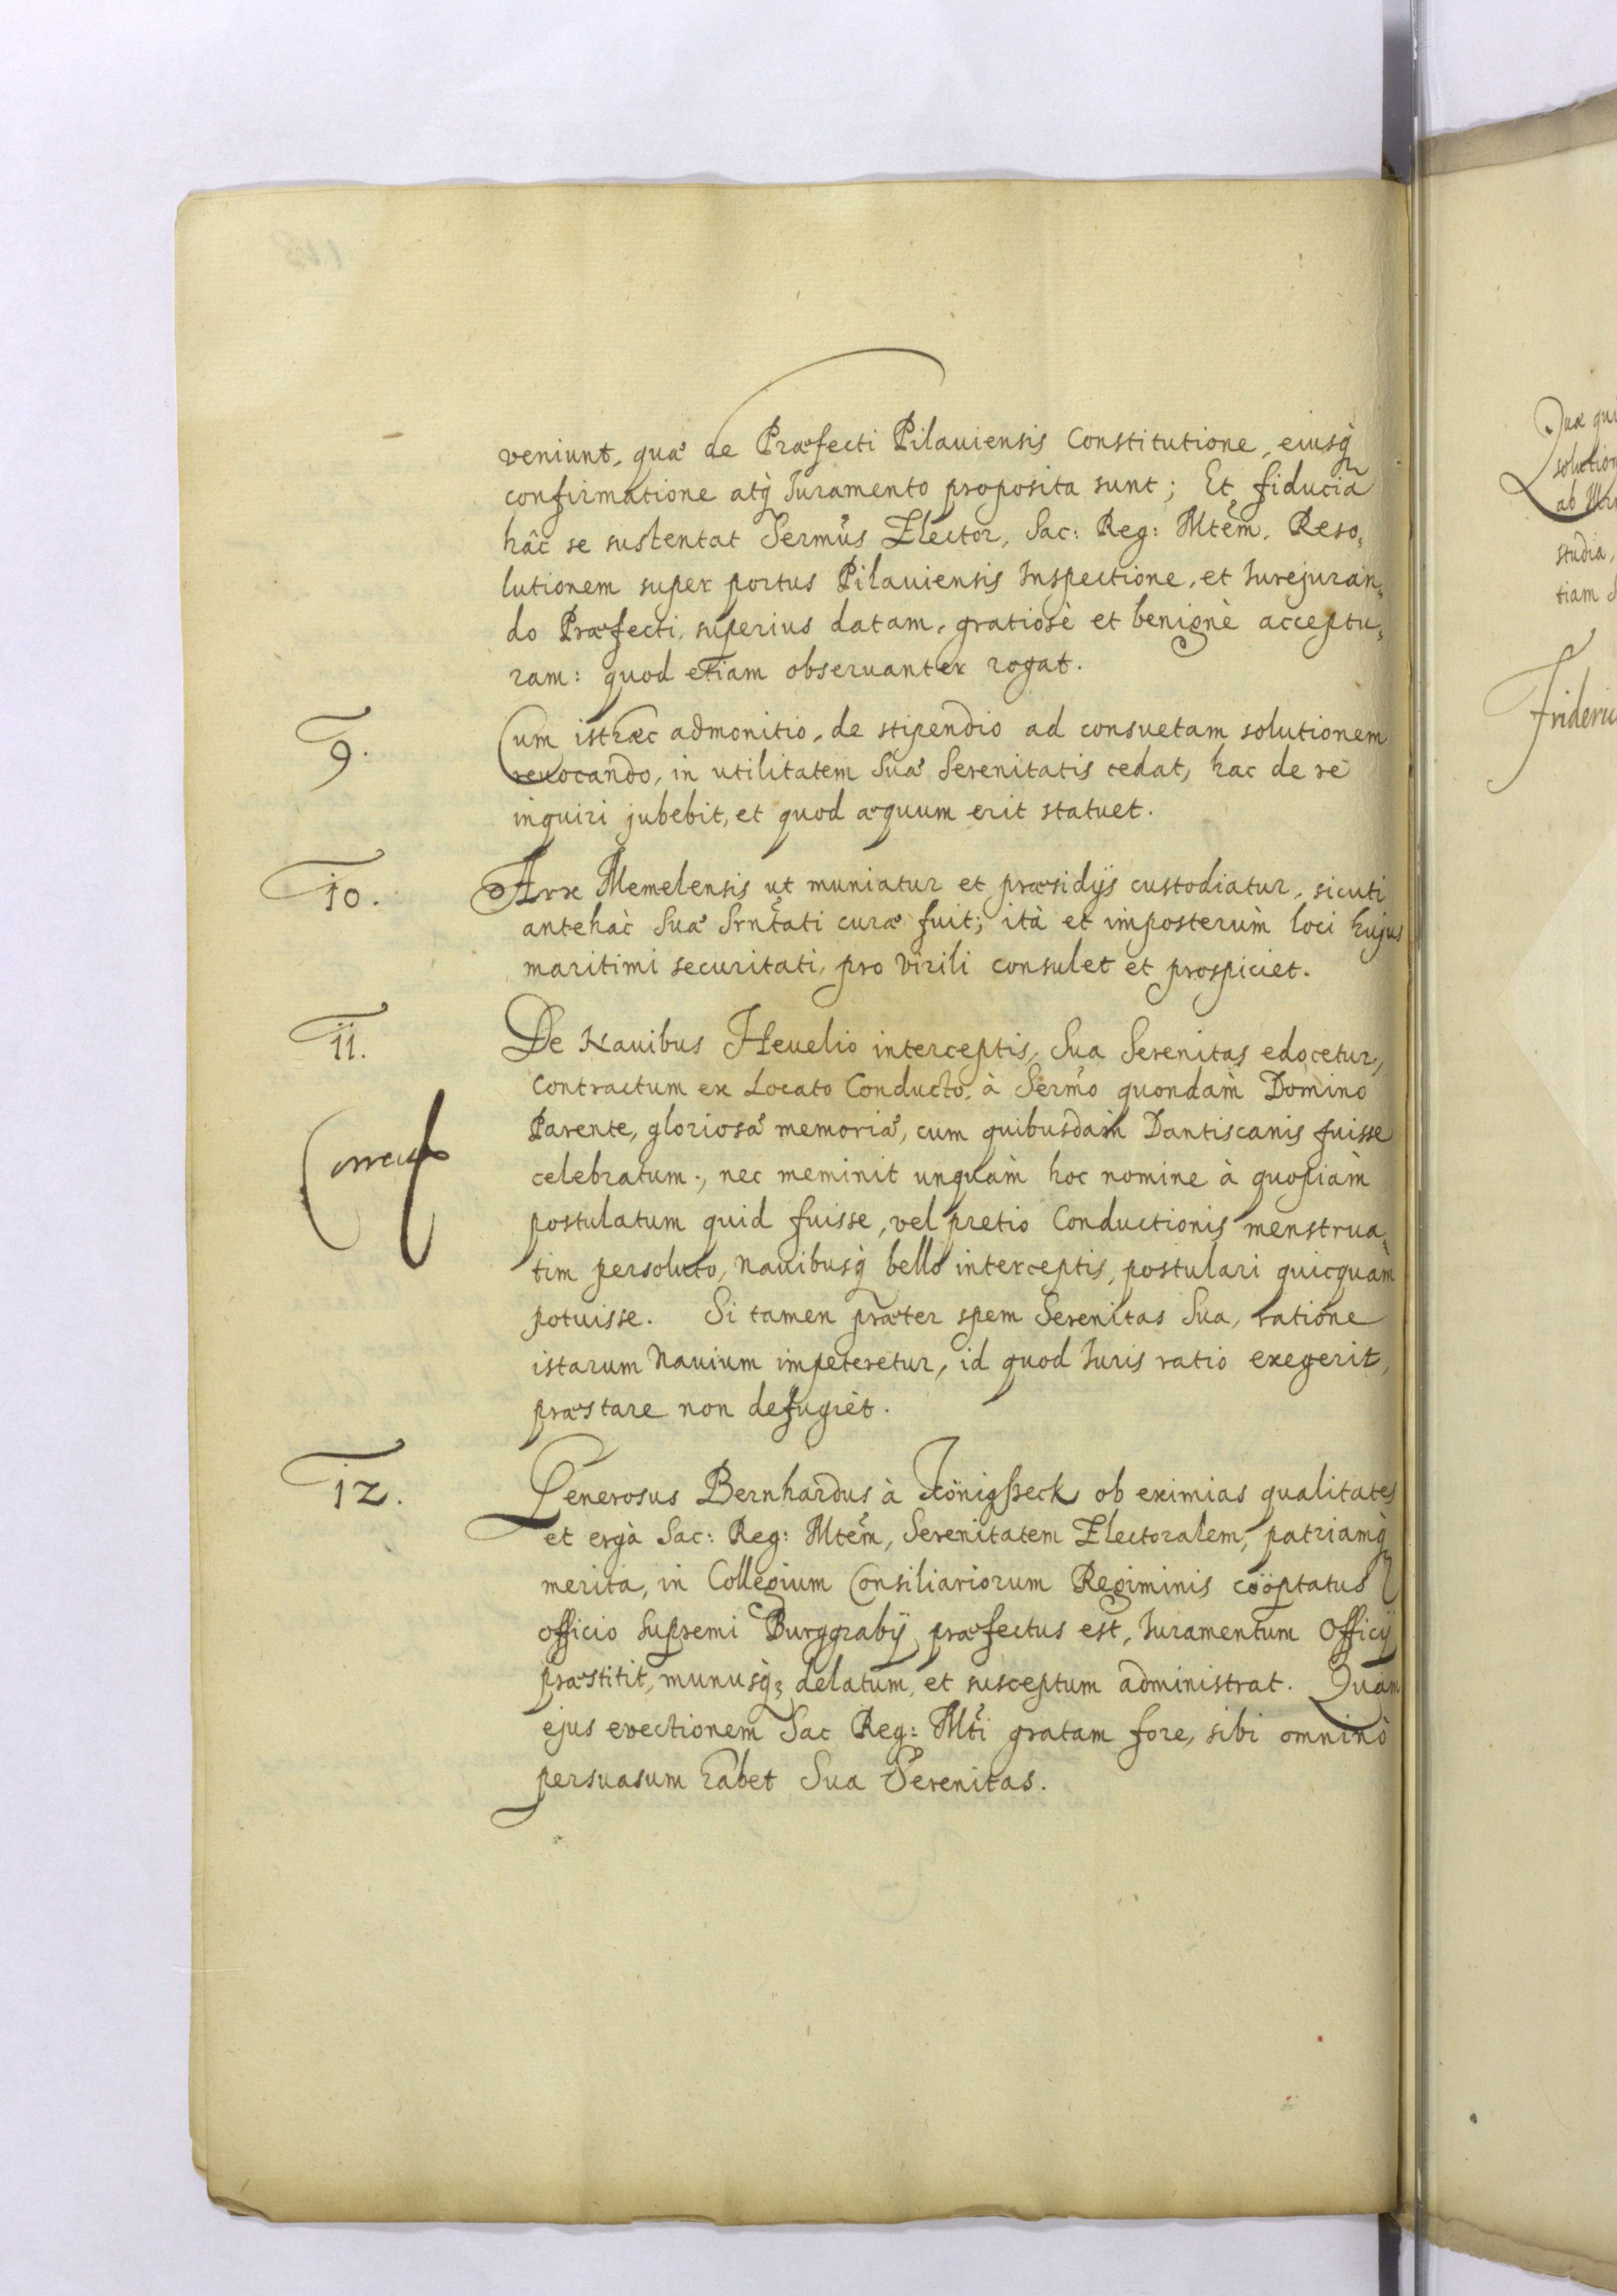 veniunt, quæ de Præfecti Pilauiensis Constitutione, eiusq̀
confirmatione atq̀ Iuramento proposita sunt; Et fiducia
hâc se sustentat Sermus Elector, Sac: Reg: Mtem. Reso„
lutionem super portus Pilauiensis Inspectione, et Iurejuran„
do Præfecti, superius datam, gratiosè et benignè acceptu„
ram: quod etiam obseruanter rogat.
9.
Cum isthæc admonitio, de stipendio ad consuetam solutionem
reuocando, in utilitatem Suæ Serenitatis cedat, hac de re
inquiri jubebit, et quod æquum erit statuet.
10.
Arx Memelensis ut muniatur et præsidijs custodiatur, sicuti
antehàc Suæ Srntati curæ fuit; ità et imposterùm loci hujus
maritimi securitati, pro virili consulet et prospiciet.
11.
De Nauibus Heuelio interceptis, Sua Serenitas edocetur,
Contractum ex Locato Conducto, à Sermo quondàm Domino
Parente, gloriosæ memoriæ, cum quibusdam Dantiscanis fuisse
celebratum, nec meminit unquàm hoc nomine à quopiàm
postulatum quid fuisse, vel pretio Conductionis menstrua„
tim persoluto, Nauibusq̀ bello interceptis, postulari quicquàm
potuisse. Si tamen præter spem Serenitas Sua, ratione
istarum Nauium impeteretur, id quod Iuris ratio exegerit,
præstare non defugiet.
12.
Generosus Bernhardus à Königßeck ob eximias qualitates
et ergà Sac: Reg: Mtem, Serenitatem Electoralem, patriamq̀
merita, in Collegium Consiliariorum Regiminis coöptatus
officio Supremi Burggrabij præfectus est, Iuramentum Officij
præstitit, munusq3 delatum, et susceptum administrat. Quam
ejus evectionem Sac Reg: Mti gratam fore, sibi omninò
persuasum habet Sua Serenitas.
Quæ
studia,
tiam